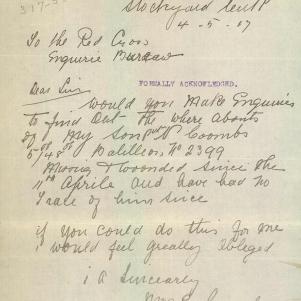 Stockyard
4-5-17
To the Red Cross
Enquirie Bureau
FORMALLY ACKNOWLEDGED.
Dear Sir
Would you Make Enquiries
to find out the where abouts
of My Son Coombs
48 Batilleon, No 2399
Missing & Wounded since the
11 Aprile and have had no
Trace of him since
if you could do this for me
I would feel greatly obleged
Sincearly